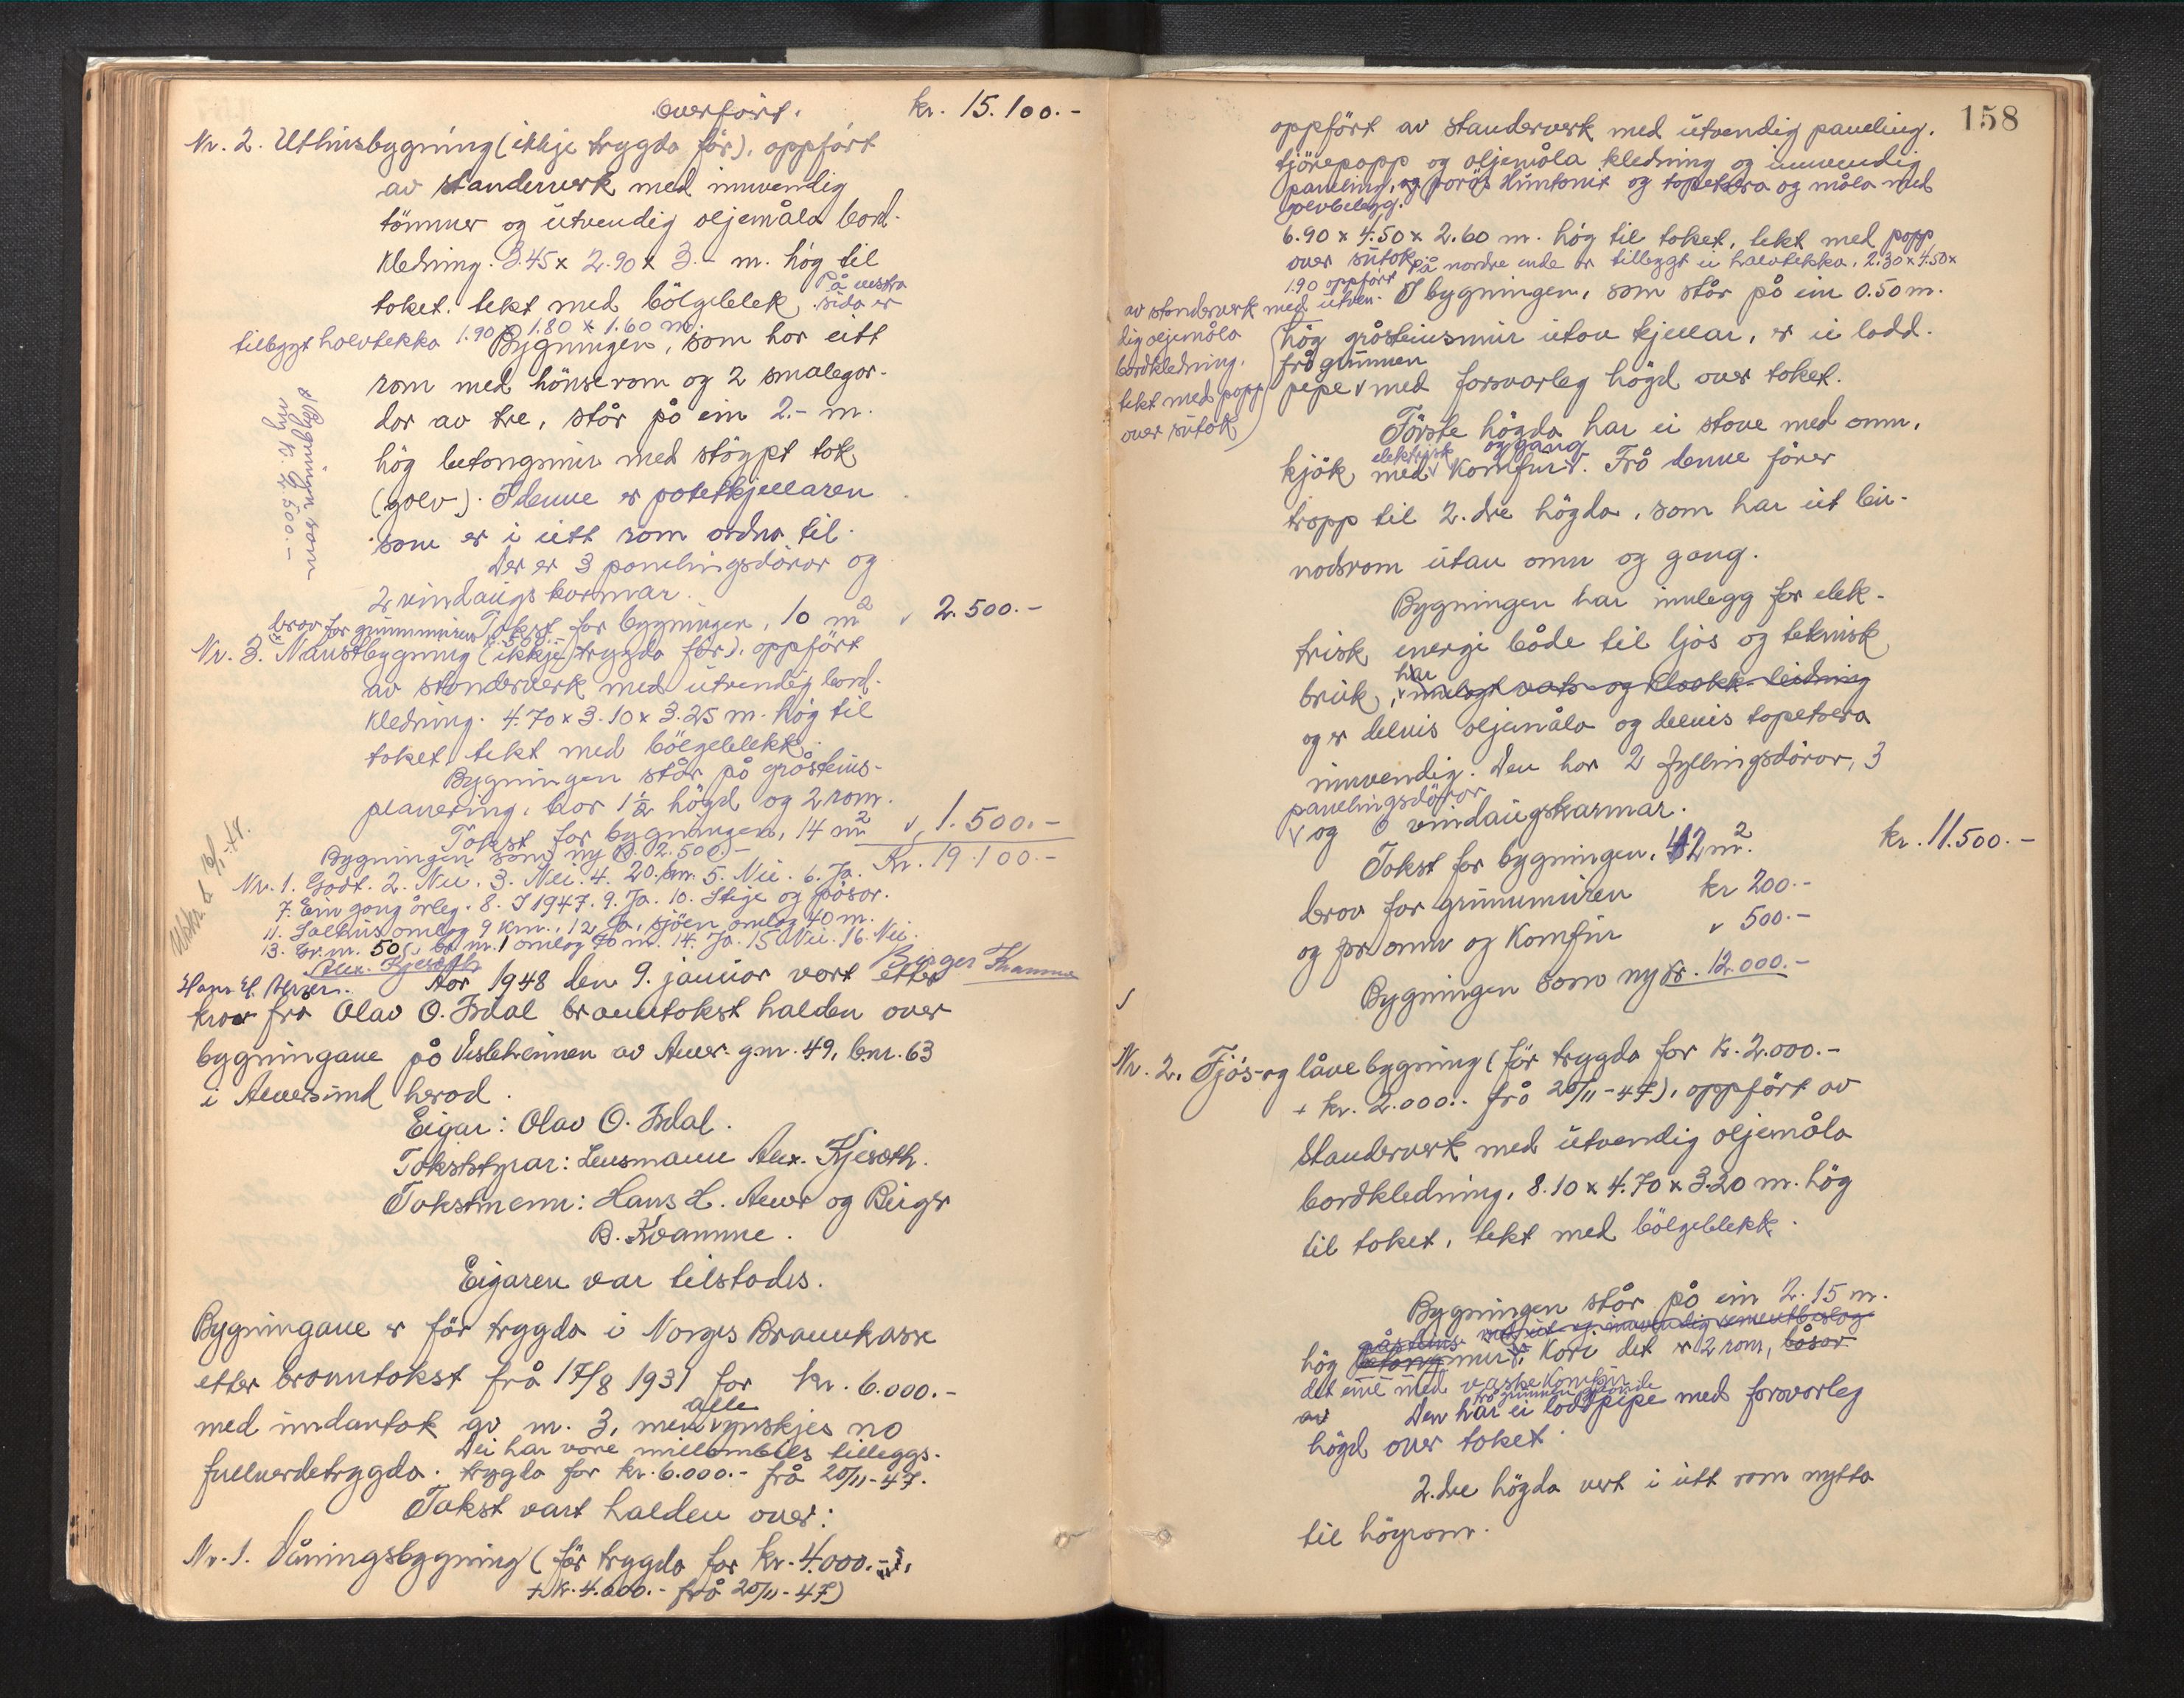 Overført. kr. 15.100.-
Nr. 2. Uthusbygning (ikkje trygda før), oppført
av standerverk med innvendig
tømmer og utvendig oljemåla bord-
kledning. 3.45 x 2.90 x 3.- m. høg til
taket, tekt med bølgeblek. På vestra
sida er
tilbygt halvtekka 1.90 x 1.80 x 1.60 m.
Bygningen, som har eitt
rom med hønserom og 2 smalegar-
dar av tre, står på ein 2.- m.
høg betongmur med støypt tak
(golv). I denne er potetkjellaren
som er i eitt rom ordna til.
Der er 3 panelingsdører og
2 vindaugskarmar.
Bygningen som
ny kr. 3.500.-
Takst for bygningen, 10 m2 v 2.500.-
brav for grunnmuren
kr. 500.-
Nr. 3. Naustbygning (ikkje trygda før), oppført
av standerverk med utvendig bord-
kledning. 4.70 x 3.10 x 3.25 m. høg til
taket, tekt med bølgeblekk.
Bygningen står på gråsteins-
planering, har 1½ høgd og 2 rom.
Takst for bygningen, 14 m2 v 1.500.-
Bygningen som ny kr. 2.500.- Kr. 19.100.-
Nr. 1. Godt. 2. Nei. 3. Nei. 4. 20 km. 5. Nei. 6. Ja.
7. Ein gong årleg. 8. I 1947. 9. Ja. 10. Stige og pøsar.
11. Salhus omlag 9 km. 12. Ja, sjøen omlag 40 m.
13. Br.nr. 50, br.nr. 1 omlag 70 m. 14. Ja. 15. Nei. 16. Nei.
Alex. Kjesæth Birger Kvamme
Hans H. Alver.
Aar 1948 den 9. januar vart etter
krav frå Olav O. Isdal branntakst halden over
bygningane på Vesleheimen av Alver g.nr. 49, b.nr. 63
i Alversund herad.
Eigar: Olav O. Isdal.
Takststyrar: Lensmann Alex. Kjesæth.
Takstmenn: Hans H. Alver og Birger
B. Kvamme.
Eigaren var tilstades.
Bygningane er før trygda i Norges Brannkasse
etter branntakst frå 17/8 1931 for kr. 6.000.-
med undantak av nr. 3, men alle ynskjes no
fullverdetrygda. Dei har vore millombels tilleggs-
trygda for kr. 6.000.- frå 20/11-47.
Takst vart halden over:
Nr. 1. Våningsbygning (før trygda for kr. 4.000.-
+ kr. 4.000.- frå 20/11-47)
158
oppført av standerverk med utvendig paneling,
tjørepapp og oljemåla kledning og innvendig
paneling, og porøs Huntonit og tapetsera og måla med
golvbelegg.
6.90 x 4.50 x 2.60 m. høg til taket, tekt med papp
over sutak. På nordre ende er tilleggt ei halvtekka, 2.30 x 4.50 x
1.90 oppført
av standerverk med utven-
dig oljemåla
bordkledning,
tekt med papp
over sutak
I bygningen, som står på ein 0.50 m.
høg gråsteinsmur utan kjellar, er ei lodd-
pipe frå grunnen med forsvarleg høgd over taket.
Første høgda har ei stove med omn,
kjøk med elektrisk komfur og gang. Frå denne fører
tropp til 2. dre høgda, som har eit bu-
nadsrom utan omn og gang.
Bygningen har innlegg for elek-
trisk energi både til ljos og teknisk
bruk, har innlagt vats- og kloakk-leidning
og er delvis oljemåla og delvis tapetsera
innvendig. Den har 2 fyllingsdører, 3
panelingsdører
og 6 vindaugskarmar.
Takst for bygningen, 42 m2. kr. 11.500.-
brav for grunnmuren kr 200.-
og for omn og komfur v 500.-
Bygningen som ny kr. 12.000.-
Nr. 2. Fjøs- og låvebygning (før trygda for kr. 2.000.-
+ kr. 2.000.- frå 20/11-47), oppført av
standerverk med utvendig oljemåla
bordkledning, 8.10 x 4.70 x 3.20 m. høg
til taket, tekt med bølgeblekk.
Bygningen står på ein 2.15 m.
høg gråsteins betong mur med ut- og innvendig sementbeslag. Kori det er 2 rom, båsar
det eine med vaskekomfur
av Den har ei frå grunnen gåande loddpipe med forsvarleg
høgd over taket.
2. dre høgda vert i eitt rom nytta
til høyrom.